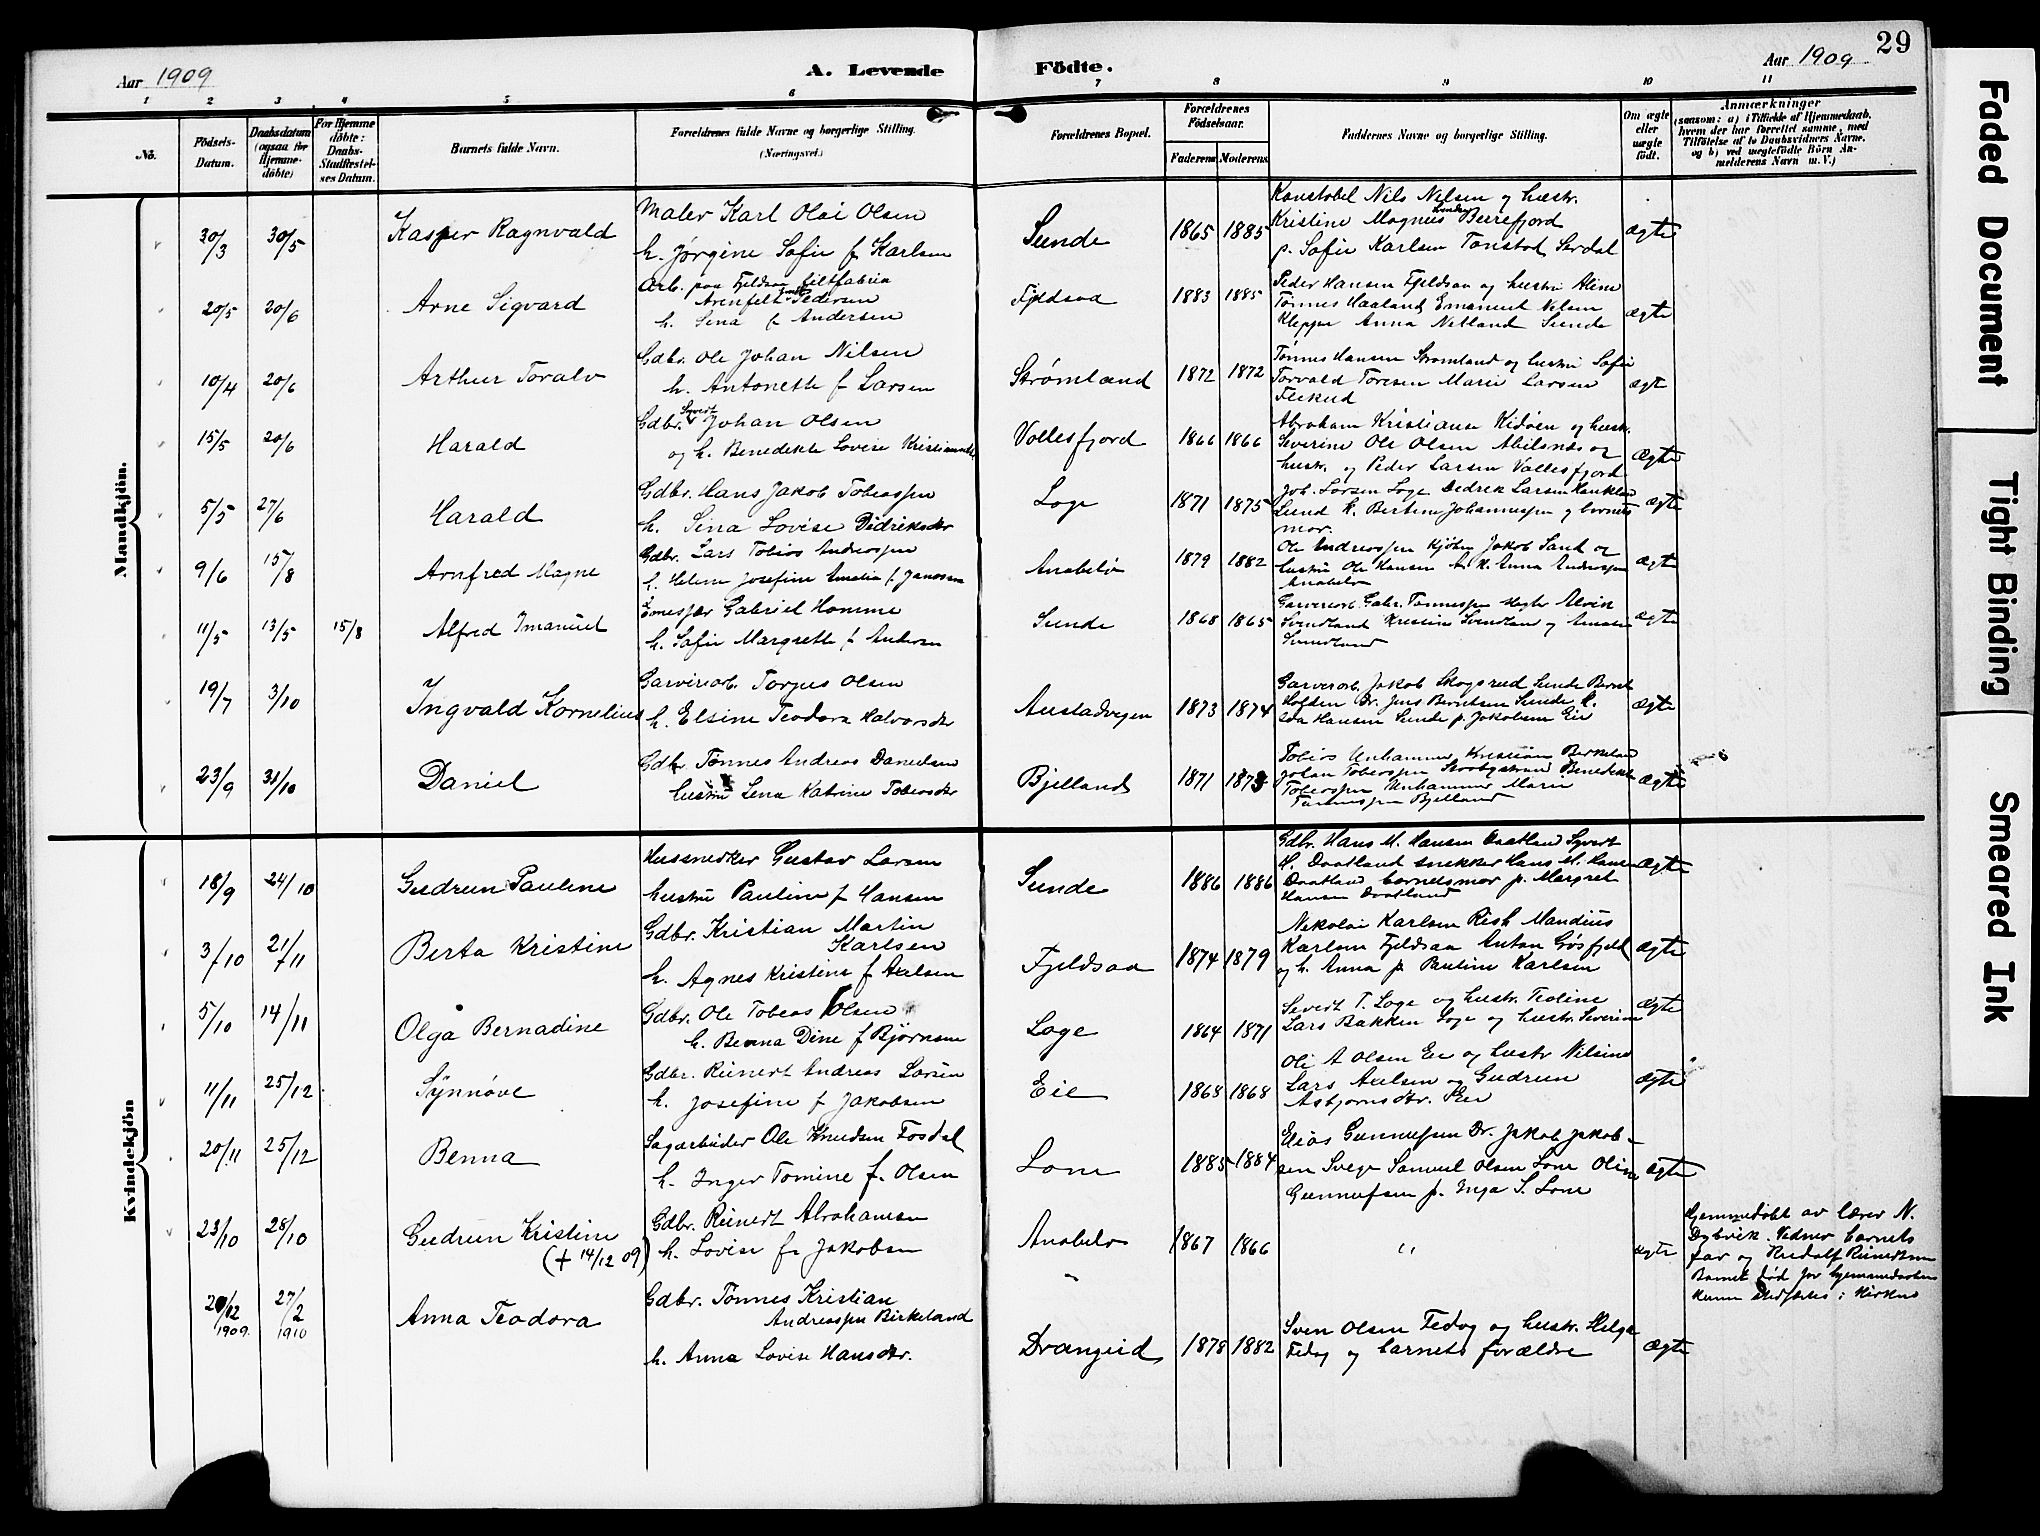 29
Aar 1909
A. Levende Födte.
Aar 1909
1 2 3 4 5 6 7 8 9 10 11
No.
Födsels-Datum.
Daabsdatum (ogsaa for Hjemmedöbte)
For Hjemmedöbte: Daabs-Stadfestelses Datum.
Barnets fulde Navn.
Forældrenes fulde Navne og borgerlige Stilling. (Næringsvei.)
Forældrenes Bopæl.
Forældrenes Födselsaar.
Faderens Moderens
Faddernes Navne og borgerlige Stilling.
Om ægte eller uægte födt.
Anmærkninger
(saasom: a) i Tilfælde af Hjemmedaab, hvem der har forrettet samme, med Tilföielse af to Daabsvidners Navne, og b) ved uægtefödte Börn Anmelderens Navn m. V.)
Mandkjön.
30/3 30/5 Kasper Ragnvald
Maler Karl Olai Olsen
h. Jørgine Sofie f Karlsen
Sunde 1865 1885
Konstabel Nils Nilsen og hustr.
Kristine Magnus Beirefjord
p. Sofie Karlsen Tonstad Serdal
ægte
20/5 20/6 Arne Sigvard
Arb. paa Fjeldsaa filtfabrik
Arenfelt Pedersen
h. Sina f Andersen
Fjeldsaa 1883 1885
Peder Hansen Fjeldsaa og hustru Aline
Tønnes Haaland Emanuel Nilsen
Kleppe Anna Netland Sunde
ægte
10/4 20/6 Arthur Toralv
Gdbr. Ole Johan Nilsen
h. Antonette f Larsen
Strømland 1872 1872
Tønnes Hansen Strømland og hustru Sofie
Torvald Toresen Marie Larsen
Flikeid
ægt
15/5 20/6 Harald
Gdbr. Syvert Johan Olsen
og h. Benedikte Lovise
Vollesfjord 1866 1866
Abraham Kristiansen Kidøen og hustr.
Severine Ole Olsen Abilsnes og
hustr. og Peder Larsen Vollesfjord
ægte
5/5 27/6 Harald
Gdbr. Hans Jakob Tobiassen
h. Sina Lovise Didriksdtr
Loge 1871 1875
Joh. Larsen Loge Dedrek Larsen
Lund K. Bertine Johannessen og barnets
mor.
ægte
9/6 15/8 Arnfred Magne
Gdbr. Lars Tobias Andreassen
h. Helene Josefine Amalia f Janssen
Anabelø 1879 1882
Ole Andreassen Kjøben Jakob Sand og
hustru Ole Hansen A. K. Anna Andreassen
Anabelø
ægt
11/5 13/5 15/8 Alfred Imanuel
Gabriel Homme
h. Sofie Margrethe f. Andersen
Sunde 1868 1865
Garveriarb. Gabr. Tønnessen Alvik
Svindland Kristine Svindland og
Svindland
ægte
19/7 3/10 Ingvald Kornelius
Garveriarb. Torjus Olsen
h. Elsine Teodora Halvorsdtr
Austadvegen 1873 1874
Garveriarb. Jakob Skogsrud Sunde Bernt
Hofden Dr. Jens Berntsen Sunde K.
Ida Hansen Sunde p. Jakobsen Eie
ægte
23/9 31/10 Daniel
Gdbr Tønnes Andreas Danielsen
hustru Lena Katrine Tobiasdtr
Bjelland 1871 1873
Tobias Unhammer Kristian Birkeland
Johan Tobiassen Benedikte
Tobiassen Unhammer Marie
Tønnessen Bjelland
ægte
Kvindekjön
18/9 24/10 Gudrun Pauline
Hussnedker Gustav Larsen
hustru Pauline f Hansen
Sunde 1886 1886
Gdbr. Hans M. Hansen Daatland Syvert
H. Daatland snekker Hans M. Hansen
Daatland barnetsmor p. Margret
Hansen Daatland
ægte
3/10 21/11 Berta Kristine
Gdbr. Kristian Martin
Karlsen
h. Agnes Kristine f Axelsen
Fjeldsaa 1874 1879
Nekolai Karlsen Risk Mandius
Karlsen Fjeldsaa Anton Gosfjeld
og h. Anna p Pauline Karlsen
ægte
5/10 14/11 Olga Bernadine
Gdbr. Ole Tobias Olsen
h. Benna Dine f Bjørnsen
Loge 1864 1871
Severt T. Loge og hustr. Teoline
Lars Bakken Loge og hustr. Severine
ægte
11/11 25/12 Synnøve
Gdbr. Reinert Andreas Larsen
h. Josefine f Jakobsen
Eie 1868 1868
Ole A Olsen Eie og hustr Nilsine
Lars Axelsen og Gudrun
Asbjørnsdtr. Eie
ægte
20/11 25/12 Benna
Sagarbeider Ole Knudsen Fosdal
h. Inger Tomine f. Olsen
Lone 1885 1884
Elias Gunnufsen Dr. Jakob Jakob-
sen Svege Samuel Olsen Lone Oline
Gunnufsen p. Inga S. Lone
ægte
23/10 28/10 Gudrun Kristine
(+ 14/12 09)
Gdbr. Reinert Abrahamsen
h. Lovise f. Jakobsen
Anabelø 1867 1866
"
ægte
Hjemmedøbt av lærer N.
Dybvik. Vedner barnets
far og Rudolf Reinertsen
Barnet død før hjemmedaaben
kunne stadfæstes i kirken
20/12 1909. 27/2 1910 Anna Teodora
Gdbr. Tønnes Kristian
Andreassen Birkeland
h. Anna Lovise Hansdtr.
Drangeid 1878 1882
Sven Olsen Fedog og hustr. Helga
Fedog og barnets forældre
ægte
Faded Document
Tight Binding
Smeared Ink